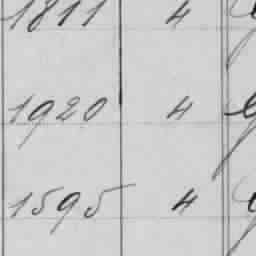 1811 4
1920 4
1595 4